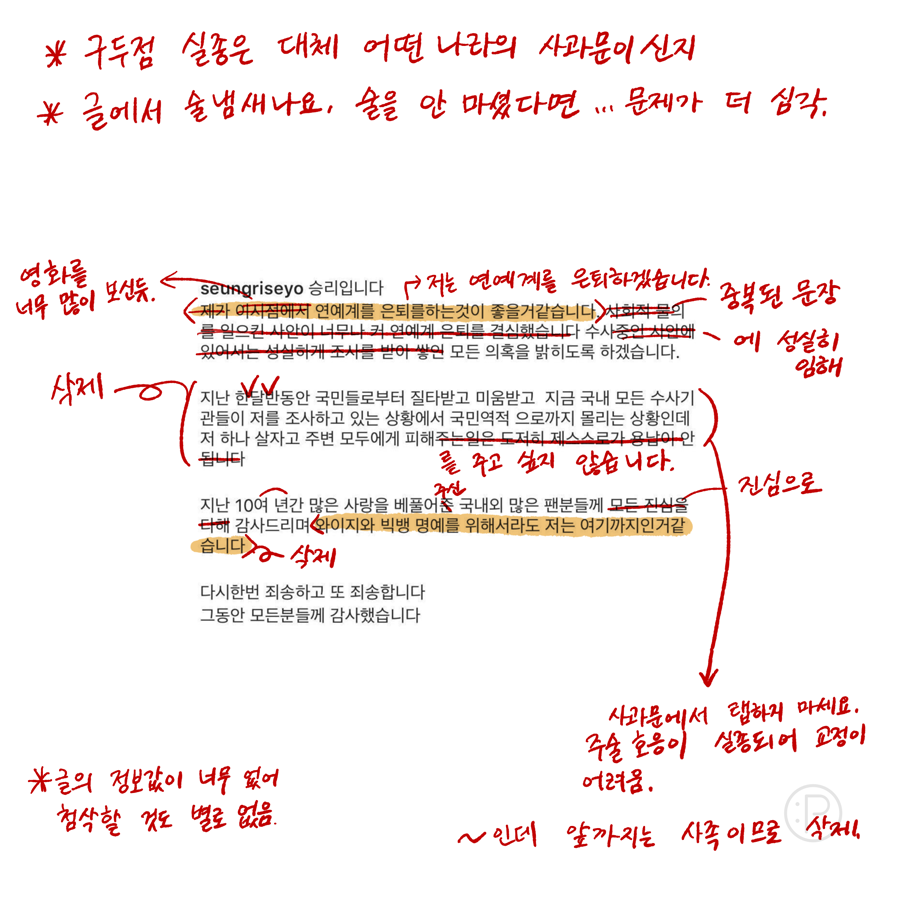 * 구두점 실종은 대체 어떤 나라의 사과문이신지
* 글에서 술냄새나요. 술을 안 마셨다면 ... 문제가 더 심각.
영화를
너무 많이 보신듯.
저는 연예계를 은퇴하겠습니다.
seungriseyo 승리입니다
제가 이시점에서 연예계를 은퇴를하는것이 좋을거같습니다. 사회적 물의
를 일으킨 사안이 너무나 커 연예계 은퇴를 결심했습니다 수사중인 사안에
있어서는 성실하게 조사를 받아 쌓인 모든 의혹을 밝히도록 하겠습니다.
중복된 문장
에 성실히
임해
삭제
지난 한달반동안 국민들로부터 질타받고 미움받고 지금 국내 모든 수사기
관들이 저를 조사하고 있는 상황에서 국민역적 으로까지 몰리는 상황인데
저 하나 살자고 주변 모두에게 피해주는일은 도저히 제스스로가 용납이 안
됩니다
를 주고 싶지 않습니다.
주신
진심으로
지난 10여 년간 많은 사랑을 베풀어준 국내외 많은 팬분들께 모든 진심을
다해 감사드리며 와이지와 빅뱅 명예를 위해서라도 저는 여기까지인거같
습니다
삭제
다시한번 죄송하고 또 죄송합니다
그동안 모든분들께 감사했습니다
사과문에서 랩하지 마세요.
주술 호응이 실종되어 교정이
어려움.
* 글의 정보값이 너무 없어
첨삭할 것도 별로 없음.
~인데 앞까지는 사족이므로 삭제.
:P